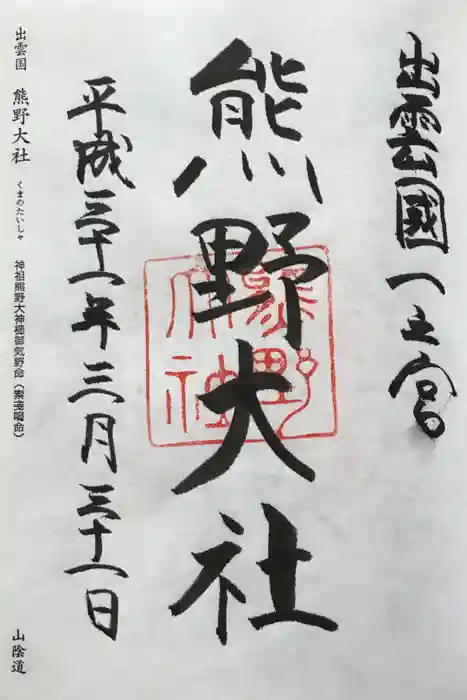 出雲國一之宮
熊野大社
熊野
大社
平成三十一年三月三十一日
出雲国 熊野大社 くまのたいしゃ 神祖熊野大神櫛御気野命（素戔嗚命） 山陰道